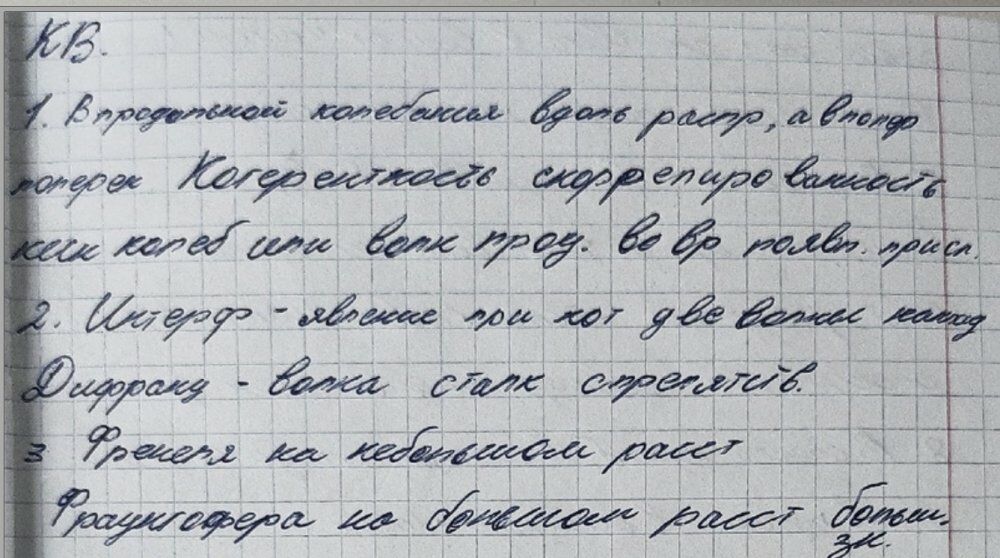 КВ.
1. В продольной колебания вдоль распр, а в попер
поперек Когерентность скоррелированность
колеб или волн проц. во вр появл. присл.
2. Интерф - явление при кот две волны наклад
Дифракц - волна сталк с препятств.
3 Френеля на небольшом расст
Фраунгофера на большом расст больш.
зн.